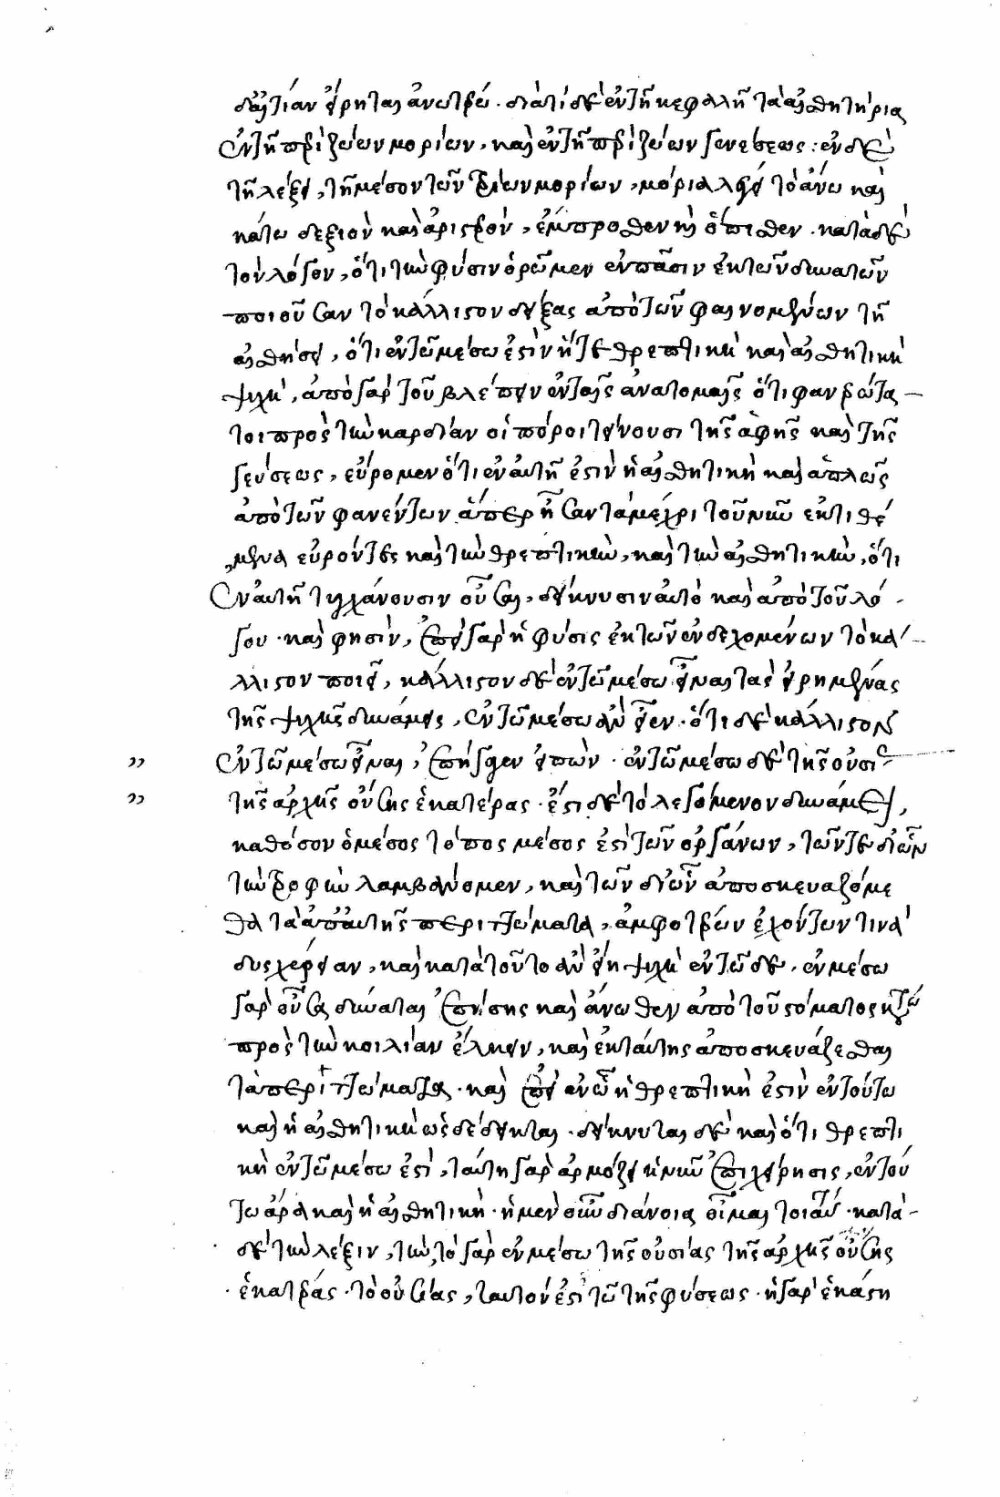 δ' αἰτίαν εἴρηται ἀνωτέρω. διὰ τί δὲ ἐν τῇ κεφαλῇ τὰ αἰσθητήρια
ἐν τῇ περὶ ζώων μορίων, καὶ ἐν τῇ περὶ ζώων γενέσεως: ἐν δὲ
τῇ λέξει, τῇ μέσον τῶν τριῶν μορίων, μόρια λέγει τὸ ἄνω καὶ
κάτω δεξιὸν καὶ ἀριστερόν, ἔμπροσθεν καὶ ὄπισθεν. κατὰ δὲ
τὸν λόγον, ὅτι τὴν φύσιν ὁρῶμεν ἐν πᾶσιν ἐκ τῶν δυνατῶν
ποιοῦσαν τὸ κάλλιστον δείξας ἀπὸ τῶν φαινομένων τῇ
αἰσθήσει, ὅτι ἐν τῷ μέσῳ ἐστὶν ἥ τε θρεπτικὴ καὶ αἰσθητικὴ
ψυχή, ἀπὸ γὰρ τοῦ βλέπειν ἐν ταῖς ἀνατομαῖς ὅτι φανερώτα-
τοι πρὸς τὴν καρδίαν οἱ πόροι τείνουσι τῆς ἁφῆς καὶ τῆς
γεύσεως, εὕρομεν ὅτι ἐν αὐτῇ ἐστὶν ἡ αἰσθητικὴ καὶ ἁπλῶς
ἀπὸ τῶν φανέντων ἅπερ ἦσαν τὰ μέχρι τοῦ νῦν ἐκτιθέ
μενα εὑρόντες καὶ τὴν θρεπτικὴν, καὶ τὴν αἰσθητικὴν, ὅτι
ἐν αὐτῇ τυγχάνουσιν οὖσαι, δείκνυσιν αὐτὸ καὶ ἀπὸ τοῦ λό-
γου. καὶ φησὶν, ἐπεὶ γὰρ ἡ φύσις ἐκ τῶν ἐνδεχομένων τὸ κά-
λλιστον ποιεῖ, κάλλιστον δὲ ἐν τῷ μέσῳ εἶναι τὰς εἰρημένας
τῆς ψυχῆς δυνάμεις, ἐν τῷ μέσῳ ἂν εἶεν. ὅτι δὲ κάλλιστον
ἐν τῷ μέσῳ εἶναι, ἐπήγαγεν εἰπών. ἐν τῷ μέσῳ δὲ τῆς οὐσίας
τῆς ἀρχῆς οὔσης ἑκατέρας. ἔστι δὲ τὸ λεγόμενον δυνάμει,
καθόσον ὁ μέσος τόπος μέσος ἐστὶ τῶν ὀργάνων, τῶν τε δι' ὧν
τὴν τροφὴν λαμβάνομεν, καὶ τῶν δι' ὧν ἀποσκευαζόμε
θα τὰ ἀπ' αὐτῆς περιττώματα, ἀμφοτέρων ἐχόντων τινὰ
δυσχέρειαν, καὶ κατὰ τοῦτο ἂν εἴη ψυχὴ ἐν τῷδε. ἐν μέσῳ
γὰρ οὖσα δύναται ἐπίσης καὶ ἄνωθεν ἀπὸ τοῦ στόματος
πρὸς τὴν κοιλίαν ἕλκειν, καὶ ἐκ ταύτης ἀποσκευάζεσθαι
τὰ περιττώματα. καὶ ἐπεὶ ἄνω ἡ θρεπτικὴ ἐστὶν ἐν τούτῳ
καὶ ἡ αἰσθητικὴ ὡς δέδεικται. δείκνυται δὲ καὶ ὅτι θρεπτι
κὴ ἐν τῷ μέσῳ ἐστὶ, ταύτῃ γὰρ ἁρμόζει ἡ νῦν ἐπιχείρησις, ἐν τού
τῳ ἄρα καὶ ἡ αἰσθητική. ἡ μὲν οὖν διάνοια οἶμαι τοιαύτη. κατὰ-
δὲ τὴν λέξιν, τὴν, τὸ γὰρ ἐν μέσῳ τῆς οὐσίας τῆς ἀρχῆς οὔσης
ἑκατέρας. τὸ οὐσίας, ταυτόν ἐστι τῷ τῆς φύσεως. ἡ γὰρ ἑκάστη